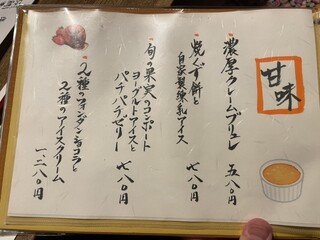 甘味
濃厚クレームブリュレ 五八〇円
焼くず餅と
自家製練乳アイス 七八〇円
旬の果実のコンポート
ヨーグルトアイスと
パチパチゼリー 七八〇円
2種のフォンダンショコラと
2種のアイスクリーム
一、二八〇円